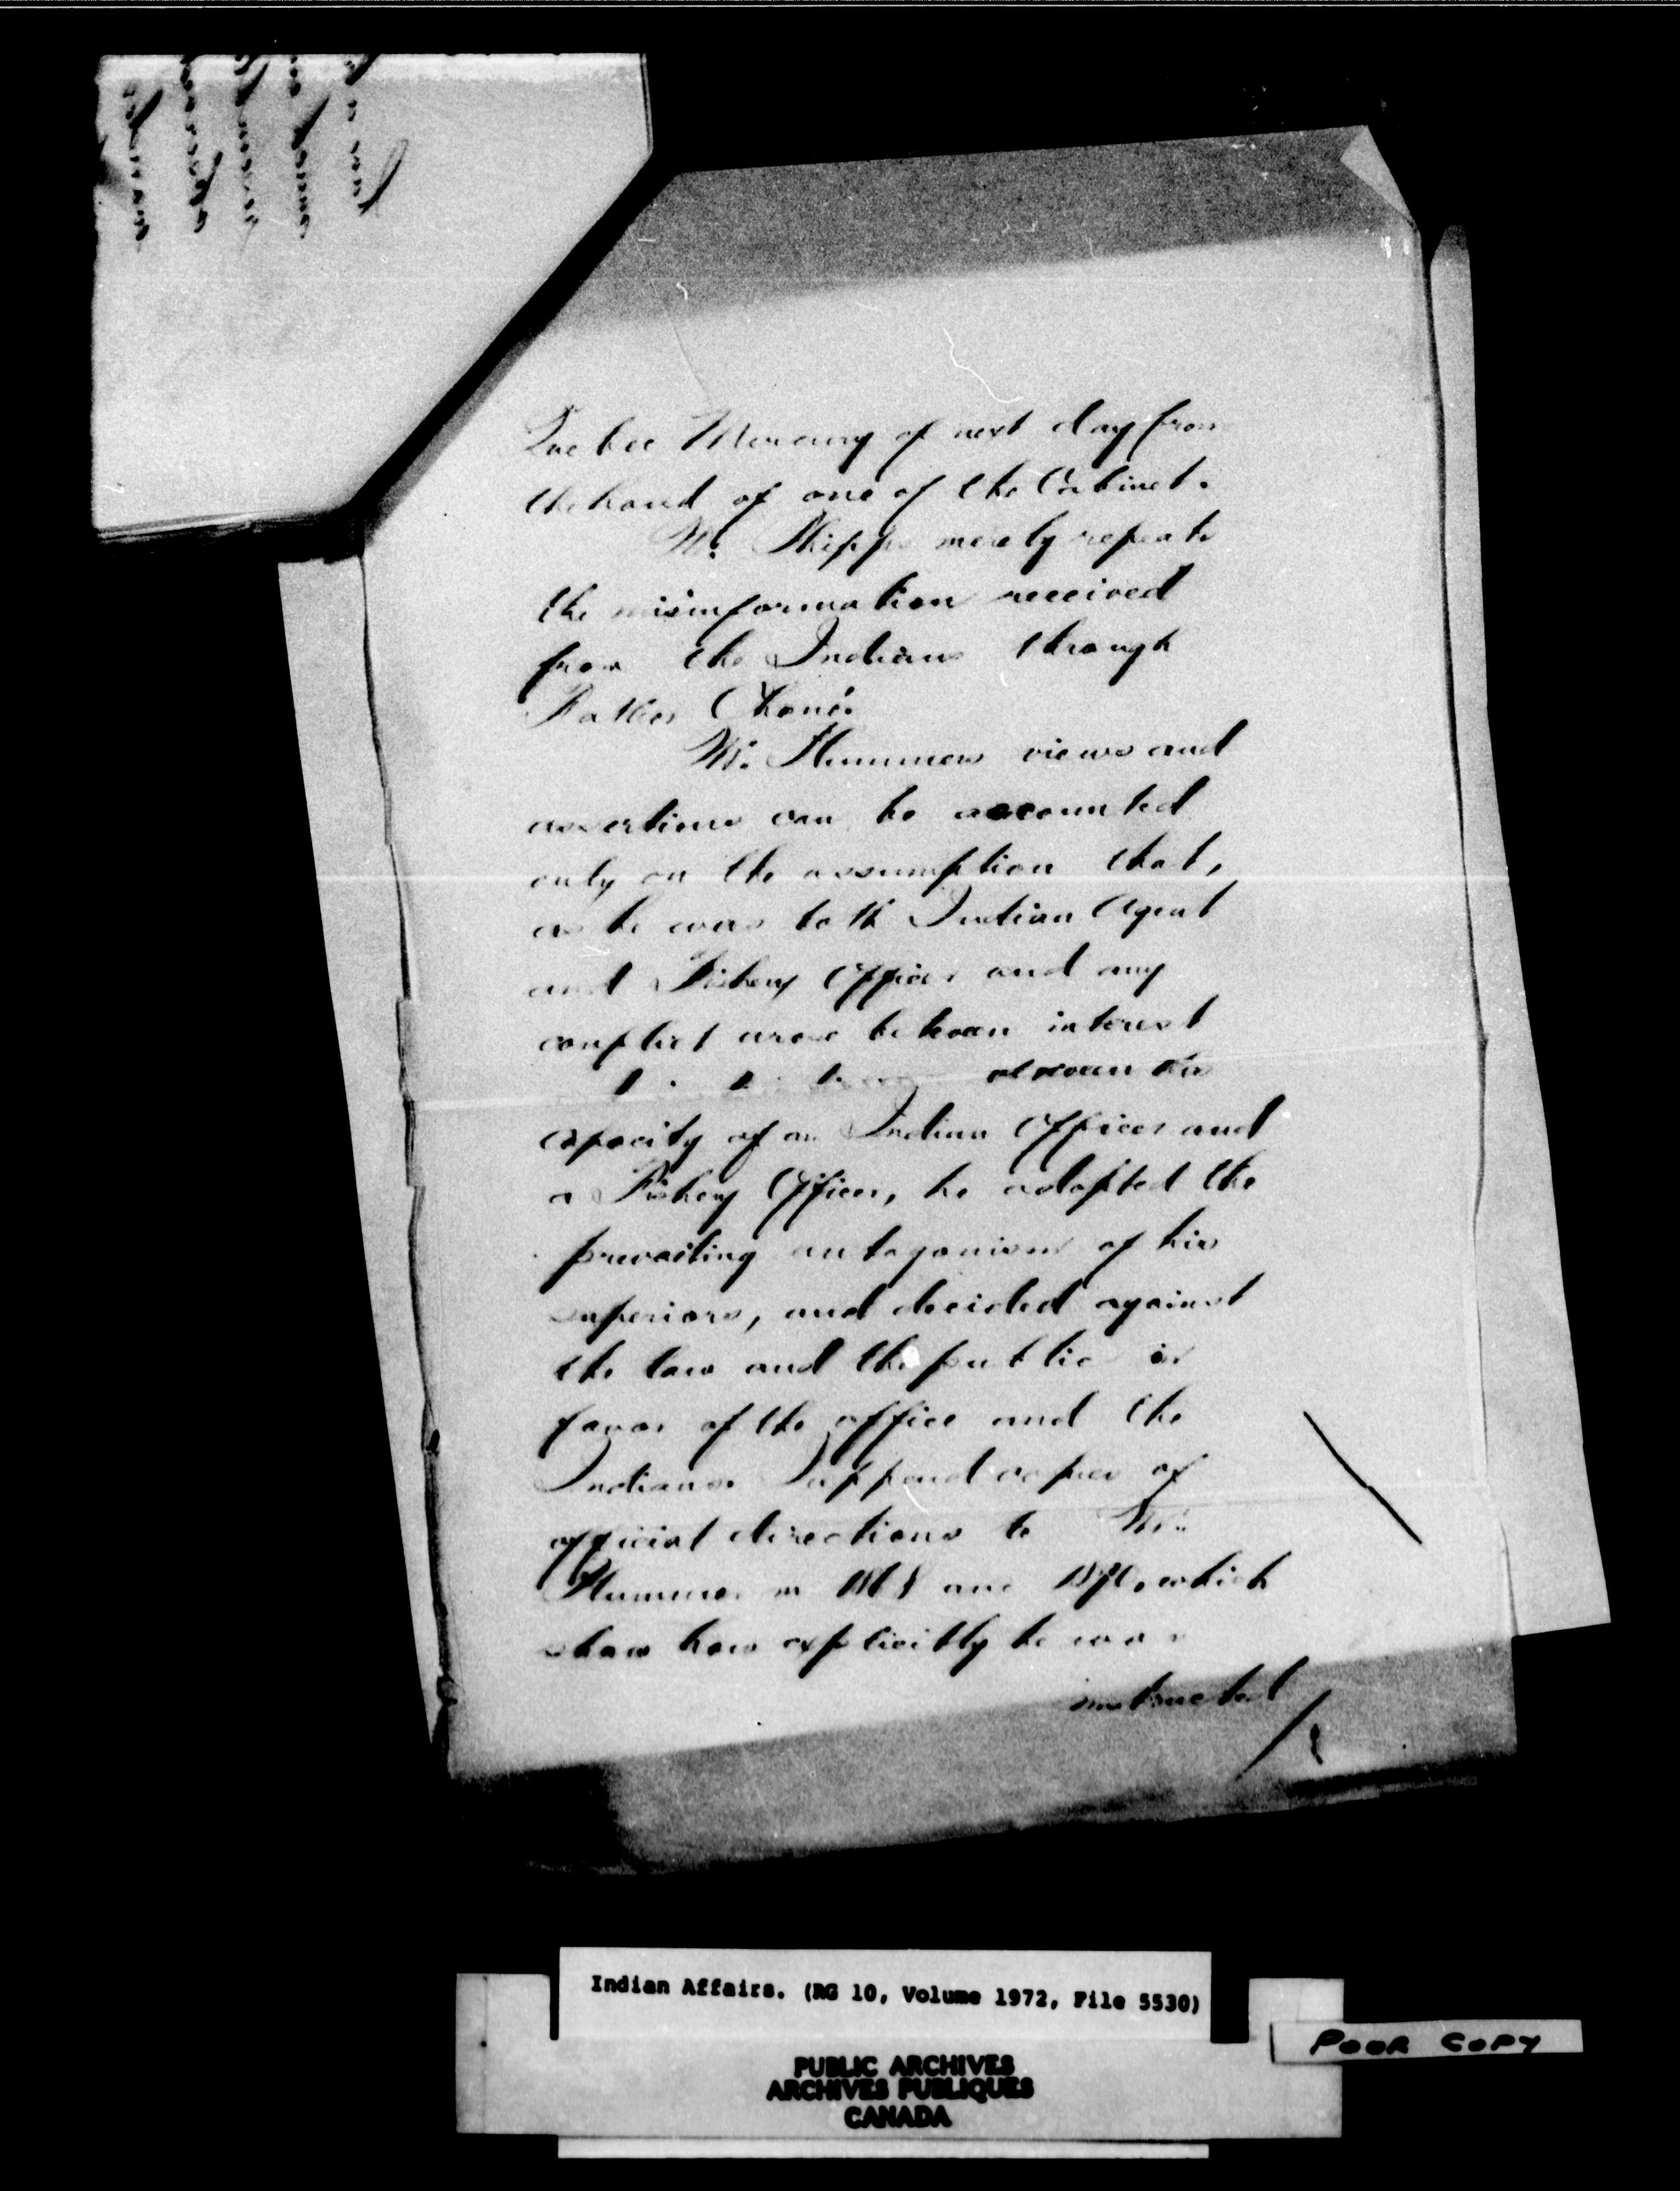 Quebec Mercury of next day from
the hand of one of the Cabinet.
Mr. Phipps merely repeats
the misinformation received
from the Indians through
Father Choné.
Mr. Plummers views and
assertions can be accounted
only on the assumption that,
as he was both Indian Agent
and Fishery Officer and any
conflict arose between interest
between his
capacity of an Indian Officer and
a Fishery Officer, he adopted the
prevailing antagonism of his
superiors, and decided against
the law and the public in
favor of the office and the
Indians. I append copies of
official directions to Mr.
Plummer in and which
show how explicitly he was
instructed
Indian Affairs. (RG 10, Volume 1972, File 5530)
PUBLIC ARCHIVES
ARCHIVES PUBLIQUES
CANADA
POOR COPY